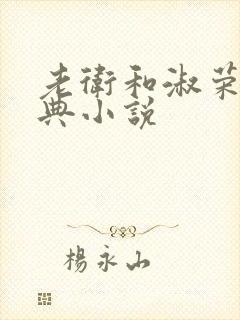 老衛和淑荣
典小說
楊永山